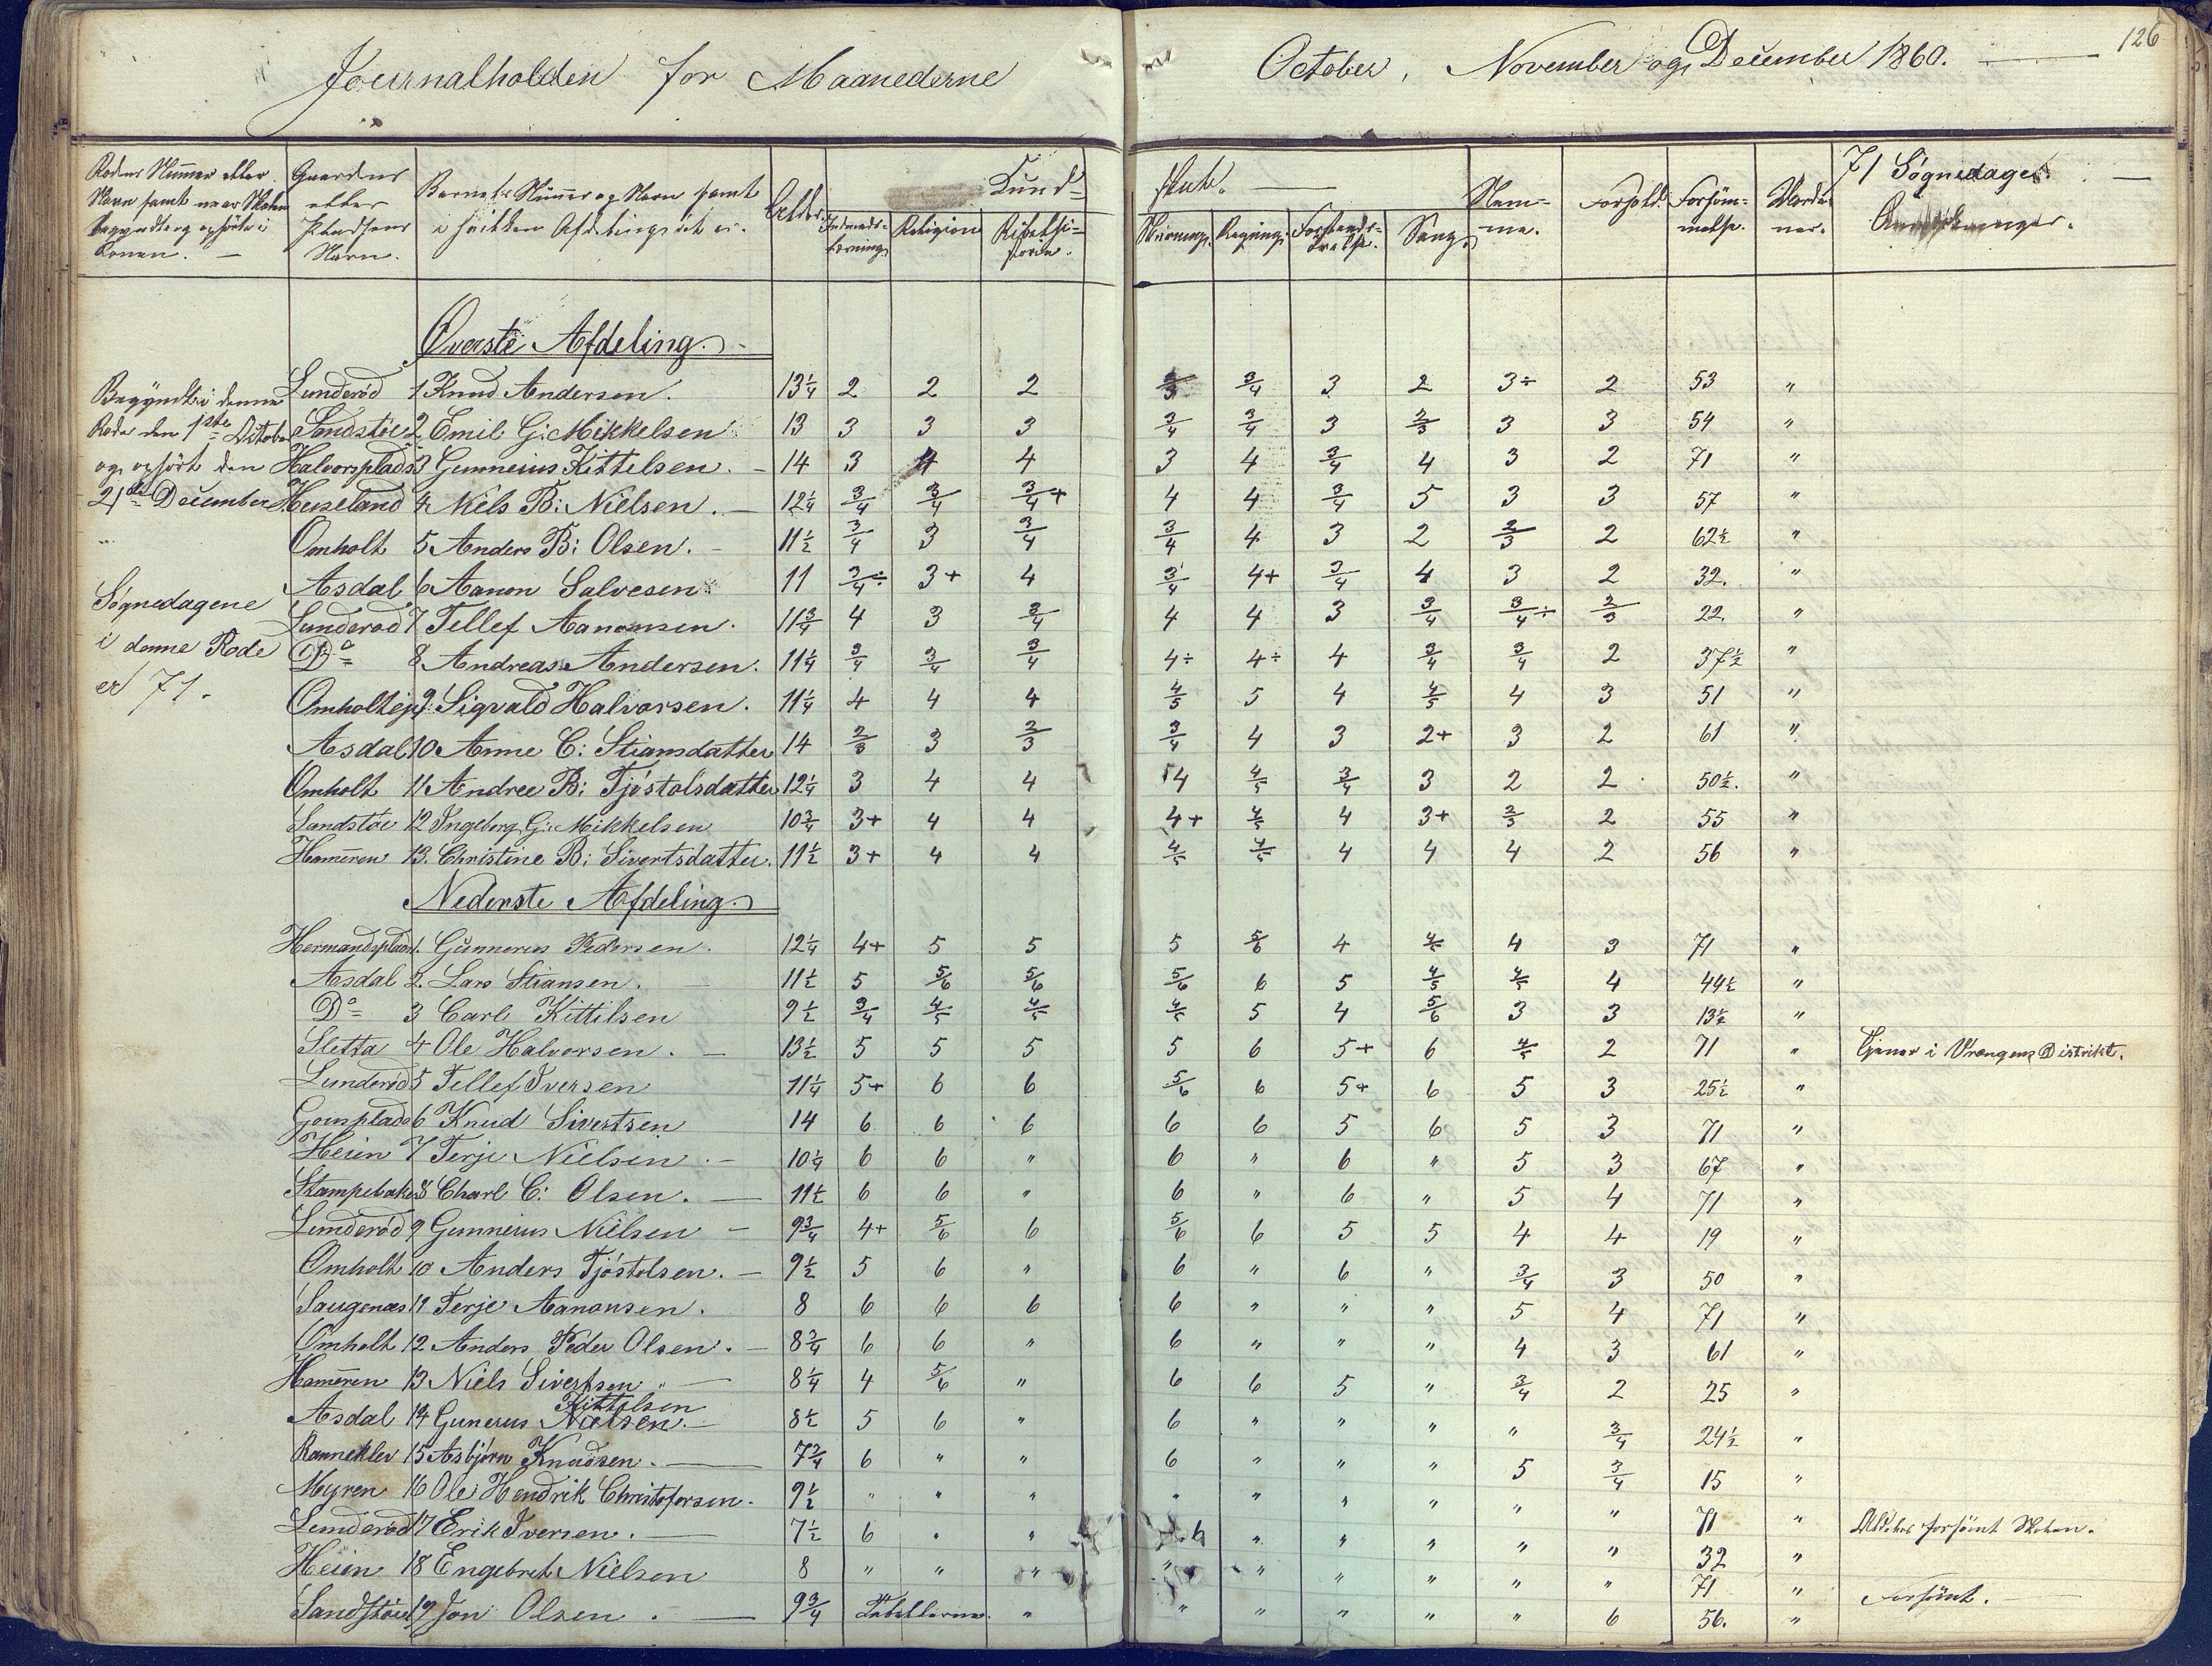 126
Journalholden for Maanederne October, November og December 1860.
Rodens Nummer eller Navn samt naar Skolen begyndte og ophörte i Roden.
Gaardens eller Pladsens Navn.
Barnets Nummer og Navn samt i hvilken Afdeling det er.
Alder.
Kundskab.
Religion
Skrivning. Regning. Sang.
Nemme. Forhold. Forsömmelse.
71 Søgnedage.
Anmærkninger.
Överste Afdeling.
Begyndt i denne
Rode den 1ste October
og ophört den
21de December
Søgnedagene
i denne Rode
er 71.
Lunderöd 1 Knud Andersen. 13¼ 2 2 2 2/3 3/4 3 2 3÷ 2 53 "
Sandstöe 2 Emil G: Mikkelsen 13 3 3 3 3/4 3/4 3 2/3 3 3 54 "
Halvorsplads 3 Gunnerius Kittelsen. 14 3 4 4 3 4 3/4 4 3 2 71 "
Huseland 4 Niels B: Nielsen. 12¼ 3/4 3/4 3/4+ 4 4 3/4 5 3 3 57 "
Omholt 5 Anders B: Olsen. 11½ 3/4 3 3/4 3/4 4 3 2 2/3 2 62½ "
Asdal 6 Aanon Salvesen 11 3/4÷ 3+ 4 3/4 4+ 3/4 4 3 2 32. "
Lunderöd 7 Tellef Aanonsen. 11¾ 4 3 3/4 4 4 3 3/4 3/4÷ 2/3 22. "
Do 8 Andreas Andersen. 11¼ 3/4 3/4 3/4 4÷ 4÷ 4 3/4 3/4 2 37½ "
Omholtejs 9 Sigvald Halvorsen. 11¼ 4 4 4 4/5 5 4 4/5 4 3 51 "
Asdal 10 Anne C: Stiansdatter 14 2/3 3 2/3 3/4 4 3 2+ 3 2 61 "
Omholt 11 Andree B: Tjöstolsdatter 12¼ 3 4 4 4 4/5 3/4 3 2 2 50½. "
Sandstöe 12 Ingeborg G: Mikkelsen 10¾ 3+ 4 4 4+ 4/5 4 3+ 2/3 2 55 "
Hammeren 13. Christine B: Sivertsdatter. 11½ 3+ 4 4 4/5 4/5 4 4 4 2 56 "
Nederste Afdeling.
Hermandsplads 1. Gunnerus Pedersen. 12¼ 4+ 5 5 5 5/6 4 4/5 4 3 71 "
Asdal 2. Lars Stiansen. 11½ 5 5/6 5/6 5/6 6 5 4/5 4/5 4 44½ "
Do 3 Carl Kittilsen 9½ 3/4 4/5 4/5 4/5 5 4 5/6 3 3 13½ "
Sletta 4 Ole Halvorsen. 13½ 5 5 5 5 6 5+ 6 4/5 2 71 " Tjener i Vrængens Distrikt.
Lunderöd 5 Tellef Iversen 11¼ 5+ 6 6 5/6 6 5+ 6 5 3 25½ "
6 Knud Sivertsen 14 6 6 6 6 6 5 6 5 3 71 "
Heien 7 Terje Nielsen. 10¼ 6 6 " 6 " 6 " 5 3 67 "
Stampebaken 8 Charl C: Olsen. 11½ 6 6 " 6 " 6 " 5 4 71 "
Lunderöd 9 Gunnerius Nielsen 9¾ 4+ 5/6 6 5/6 6 5 5 4 4 19 "
Omholt 10 Anders Tjöstolsen. 9½ 5 6 " 6 " 6 " 3/4 3 50 "
Saugenæs 11 Terje Aanonsen. 8 6 6 6 6 " " " 5 4 71 "
Omholt 12 Anders Peder Olsen. 8¾ 6 6 " 6 " " " 4 3 61 "
Hammeren 13 Niels Sivertsen 8¼ 4 5/6 " 6 6 5 " 3/4 2 25 "
Kittelsen
Asdal 14 Gunerus Nielsen. 8½ 5 6 " 6 " " " " 3/4 24½ "
Ranneklev 15 Asbjörn Knudsen. 7¾ 6 " " 6 " " " 5 3/4 15 "
Myren 16 Ole Hendrik Christofersen. 9½ " " " " " " " " " 71 " Aldeles forsömt Skolen.
Lunderöd 17 Erik Iversen. 7½ 6 " " 6 " " " " " 32 "
Heien 18 Engebret Nielsen 8 " " " " " " " " " 71 " Forsömt.
Sandstöe 19 Jon Olsen. 9¾ " " " " " " 6 56. "